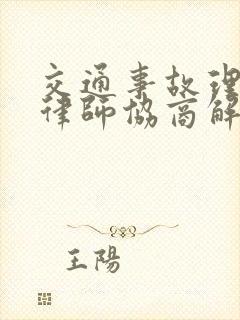 交通事故理
律師協商解
王陽